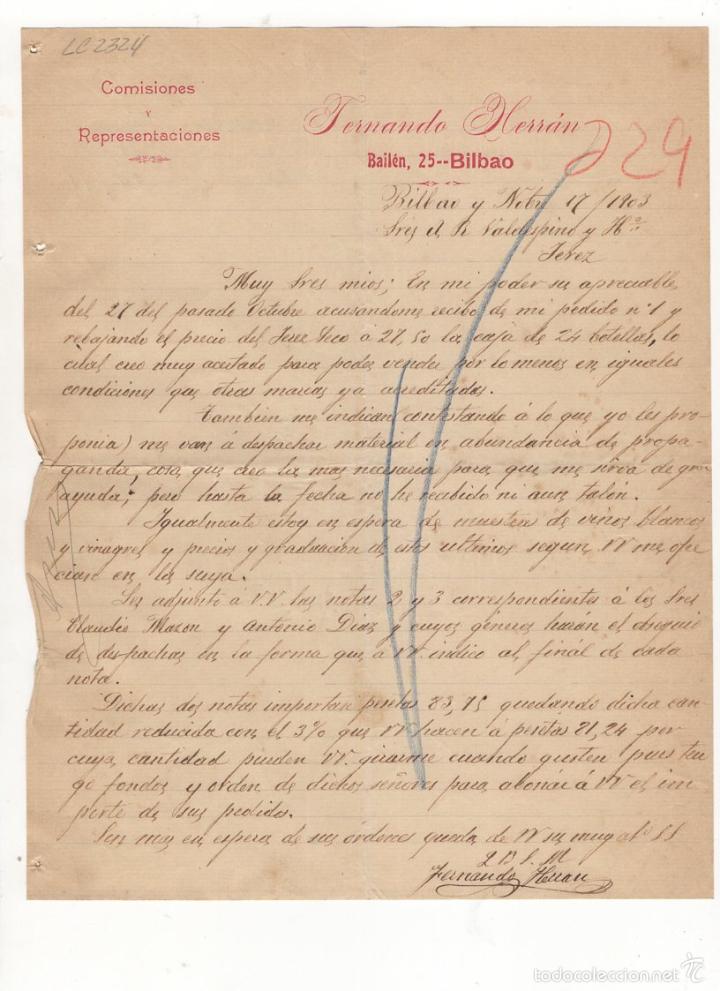 LC2324
Comisiones
Y
Representaciones
Fernando Herrán
Bailén, 25--Bilbao
229
Bilbao y Nobre 17/1903
Sres A R Valdespino y Hº
Jerez
Muy Sres mios; En mi poder su apreciable
del 27 del pasado Octubre acusandome recibo de mi pedido nº 1 y
rebajando el precio del Jerez Seco á 27,50 la caja de 24 botellas, lo
cual creo muy acertado para poder vender por lo menos en iguales
condiciones que otras marcas ya acreditadas.
Tambien me indican contestando á lo que yo les pro-
ponia) me van á despachar material en abundancia de propa-
ganda, cosa que creo la mas necesaria para que me sirva de gran
ayuda; pero hasta la fecha no he recibido ni aun talón.
Igualmente estoy en espera de muestras de vinos blancos
y vinagres y precios y graduacion de estos ultimos segun VV me ofre
cian en la suya.
Les adjunto á V.V. las notas 2 y 3 correspondientes á los Sres
Claudio Mazon y Antonio Diaz y cuyos generos haran el obsequio
de despachar en la forma que á VV. indico al final de cada
nota.
Dichas dos notas importan pesetas 83,75 quedando dicha can-
tidad reducida con el 3% que VV hacen á pesetas 81,24 por
cuya cantidad pueden VV. girarme cuando gusten pues ten
go fondos y orden de dichos señores para abonar á VV el im
porte de sus pedidos.
Sin mas en espera de sus órdenes queda de VV su muy atº SS
Q B S M
Fernando Herran
todocoleccion.net